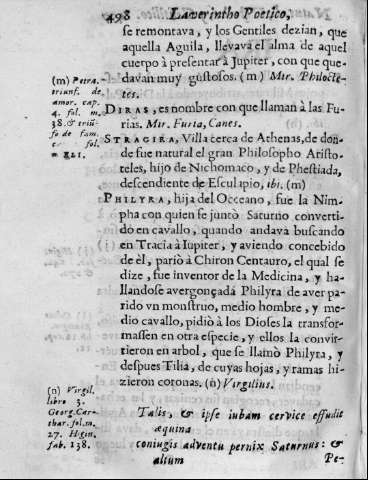 498 Laverintho Poetico,
se remontava, y los Gentiles dezian, que
aquella Aguila, llevava el alma de aquel
cuerpo à presentar à Jupiter, con que que-
davan muy gustosos. (m) Mir. Philocte-
tes.
(m) Petra.
triunf. de
amor. cap.
4. fol. m.
38. & triũ-
fo de fam.
c fol.
m 121.
DIRAS, es nombre con que llaman à las Fu-
rias. Mir. Furia, Canes.
STRAGIRA, Villa cerca de Athenas, de don-
de fue natural el gran Philosopho Aristo-
teles, hijo de Nichomaco, y de Phestiada,
descendiente de Esculapio, ibi. (m)
PHILYRA, hija del Occeano, fue la Nim-
pha con quien se juntò Saturno converti-
do en cavallo, quando andava buscando
en Tracia à Iupiter, y aviendo concebido
de èl, pariò à Chiron Centauro, el qual se
dize, fue inventor de la Medicina, y ha-
llandose avergonçada Philyra de aver pa-
rido vn monstruo, medio hombre, y me-
dio cavallo, pidiò à los Dioses la transfor-
massen en otra especie, y ellos la convir-
tieron en arbol, que se llamò Philyra, y
despues Tilia, de cuyas hojas, y ramas hi-
zieron coronas. (n) Virgilius.
(n) Virgil.
libro 3.
Georg. Car-
thar. fol. m.
27. Higin.
fab. 138.
Talis, & ipse iubam cervice effudit
æquina
coniugis adventu pernix Saturnus: &
altium
Pe-